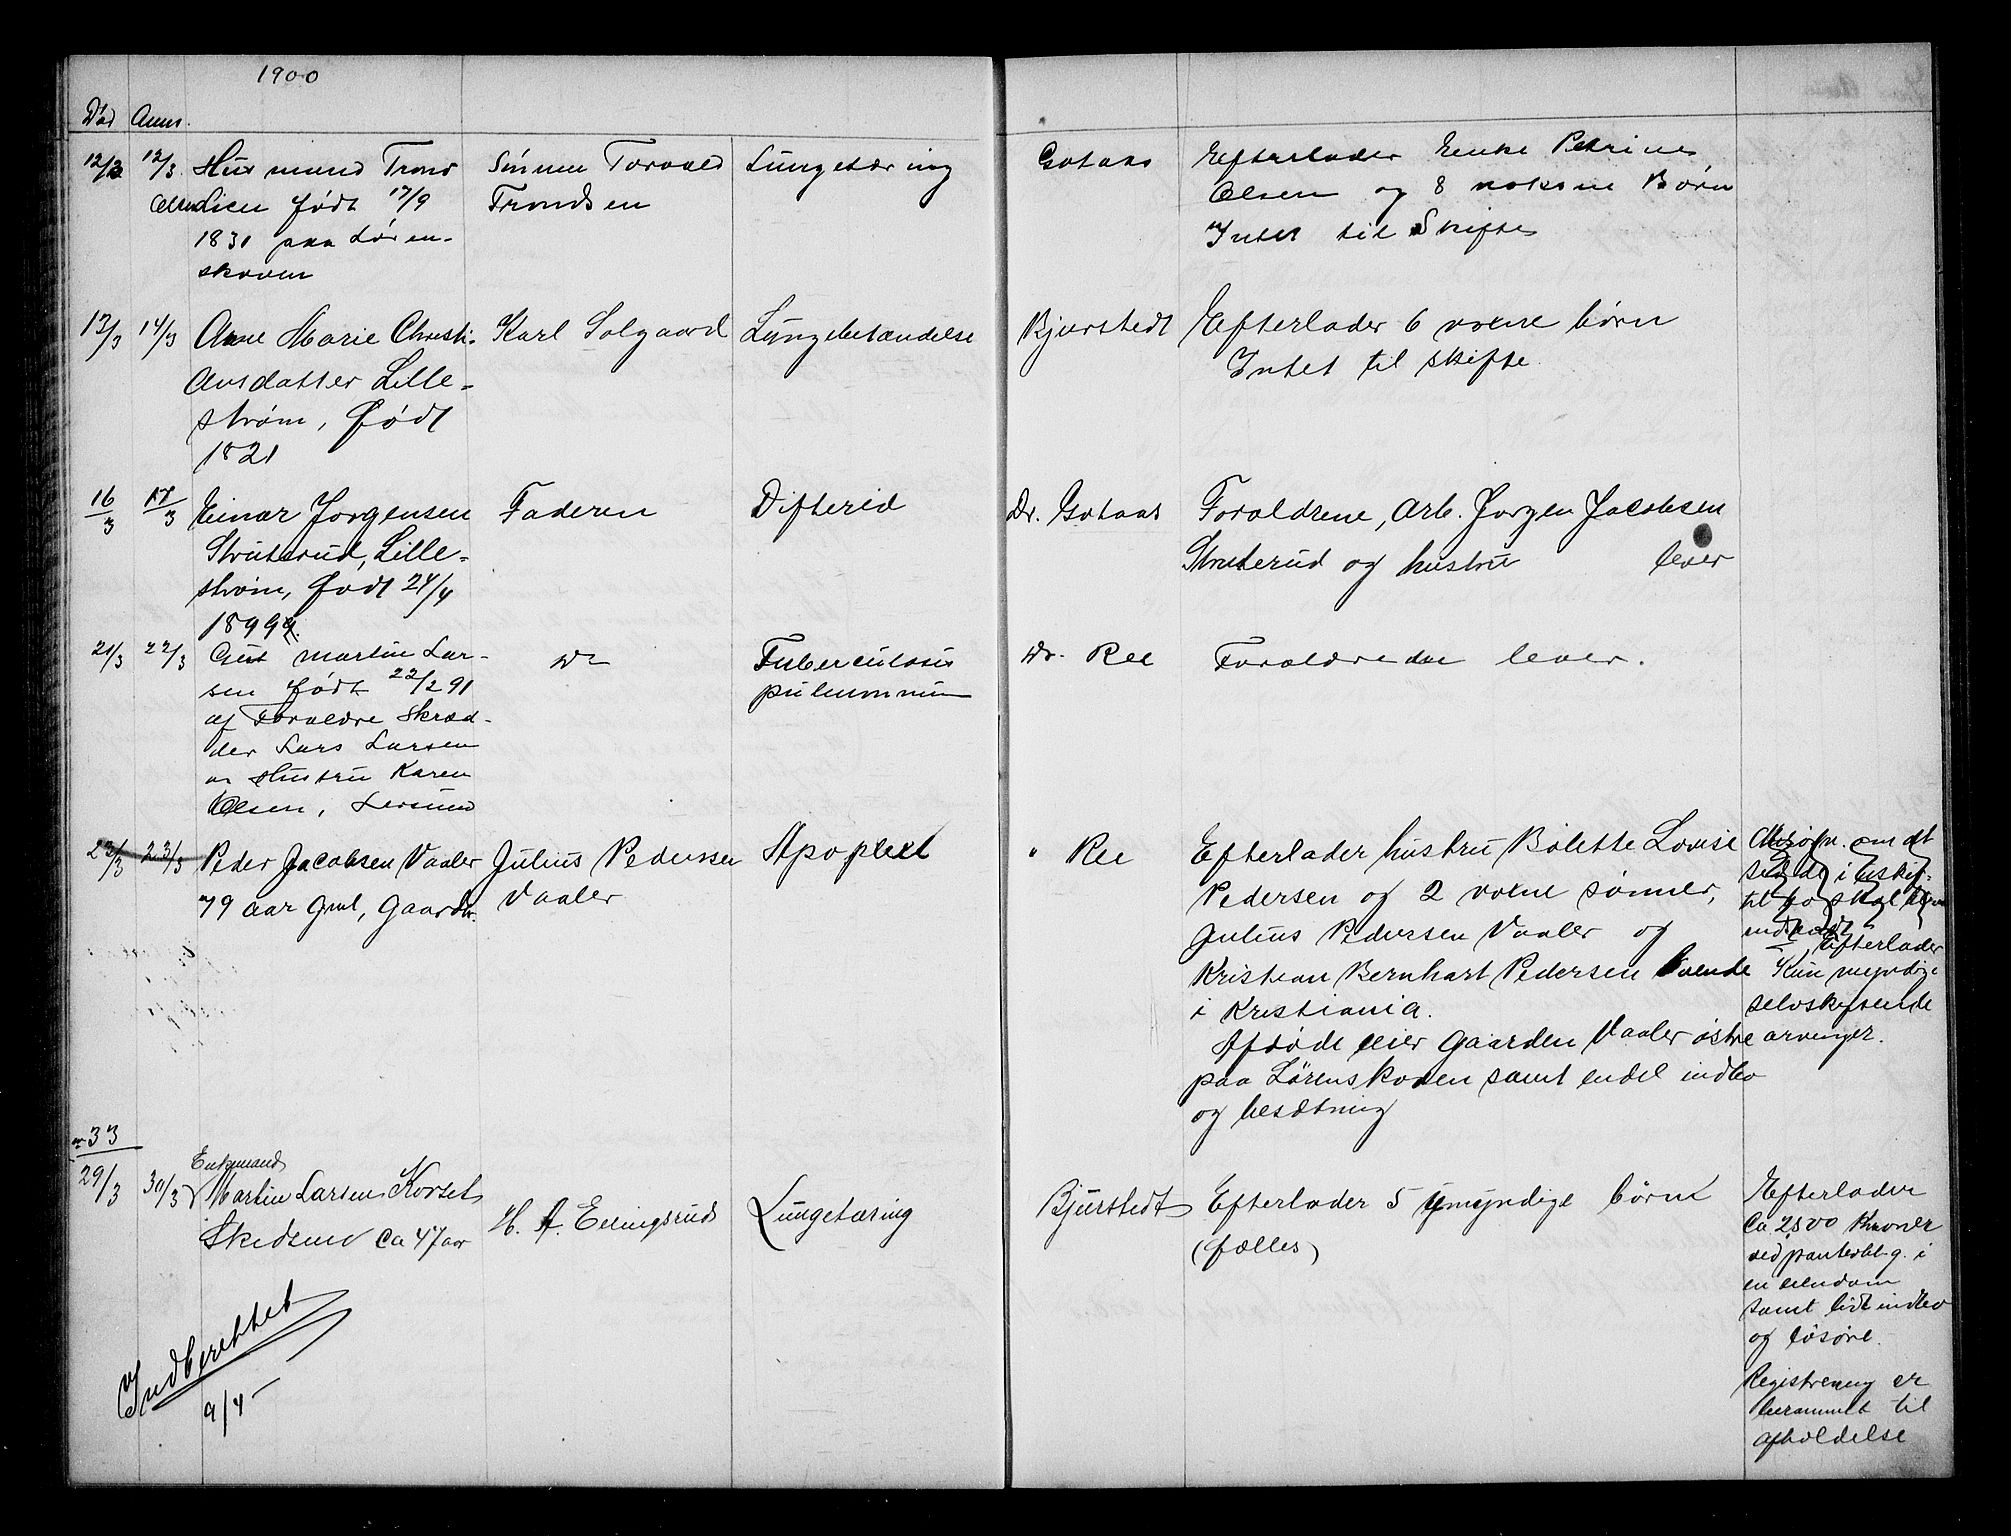 1900
Død Anm.
12/3 12/3. Husmand Trond
Lien født 17/9
1831 paa Løren-
skoven
Sønnen Torvald
Trondsen
Lungetæring
Gotaas
Efterlader Enke Petrine
Olsen og 8 voksne Børn
Intet til Skifte
13/3 14/3 Anne Marie Christi-
ansdatter Lille-
strøm, født
1821
Karl Solgaard
Lungebetændelse
Bjurstedt
Efterlader 6 voxne børn
Intet til skifte.
16/3 17/3 Einar Jørgensen
Struterud, Lille-
strøm, født 24/4
1899.
Faderen
Difterid
Dr. Gotaas
Forældrene, Arb. Jørgen Jacobsen
Struterud og hustru lever
21/3 22/3 Martin Lar-
sen født 22/2 91
af Forældre Skræd-
der Lars Larsen
og Hustru Karen
Olsen,
Do
Tuberculosis
pulmonum
Dr. Ree
Forældrene lever.
23/3 23/3 Peder Jacobsen Vaaler
79 aar gml, Gaardbr.
Julius Pedersen
Vaaler
Apoplexi
" Ree
Efterlader hustru Bolette Lovise
Pedersen og 2 voxne sønner,
Julius Pedersen Vaaler og
Kristian Bernhart Pedersen boende
i Kristiania.
Afdøde eier Gaarden Vaaler østre
paa Lørenskoven samt endel indbo
og besætning
om at
sidde i uskif-
tet bo skal
indsendt
Efterlader
Kun myndige
selvskiftende
arvinger.
no 33
29/3 30/3 Enkemand
Martin Larsen Korset
Skedsmo ca 47 aar
H. A. Ellingsrud
Lungetæring
Bjurstedt
Efterlader 5 umyndige børn
(fælles)
Efterlader
Ca 2800 Kroner
ved pantobl-g. i
en eiendom
samt lidt indbo
og løsøre.
Registrering er
berammet til
afholdelse
Indberettet
9/4-